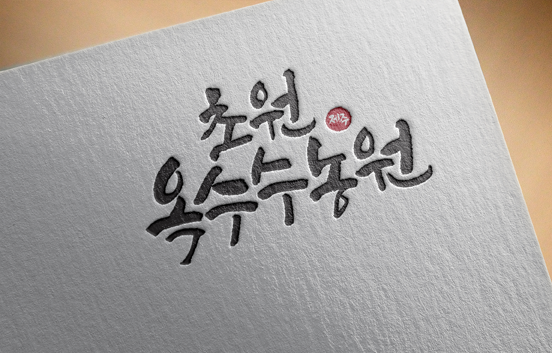 초원 제주
옥수수농원